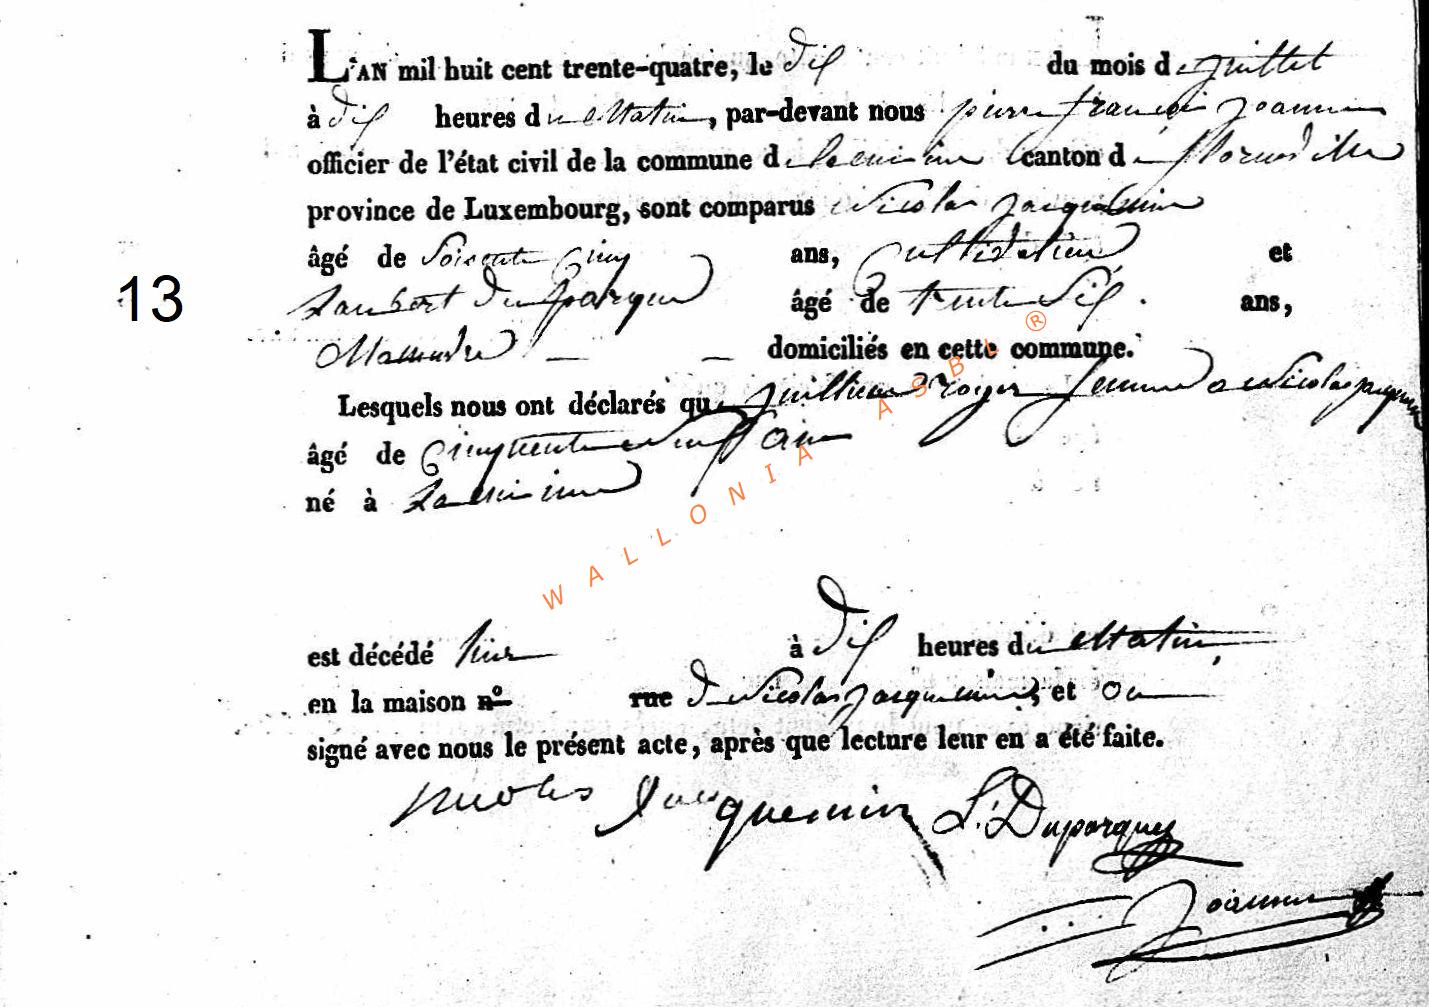 L'AN mil huit cent trente-quatre, le dix du mois de juillet
à dix heures du Matin, par-devant nous pierre françois Joannes
officier de l'état civil de la commune de canton de florenville
province de Luxembourg, sont comparus Nicolas Jacquemin
âgé de Soisente Cinq ans, Cultivateur et
Lambert Duparque âgé de trente Six ans,
domiciliés en cette commune.
Lesquels nous ont déclarés que royer femme a Nicolas Jacquemin
âgé de Cinquente neuf an
né à
est décédé hier à dix heures du Matin,
en la maison nº rue de Nicolas Jacquemin, et on
signé avec nous le présent acte, après que lecture leur en a été faite.
nicolas Jacquemin L. Duparque
Joannes
13
WALLONIA ASBL ®